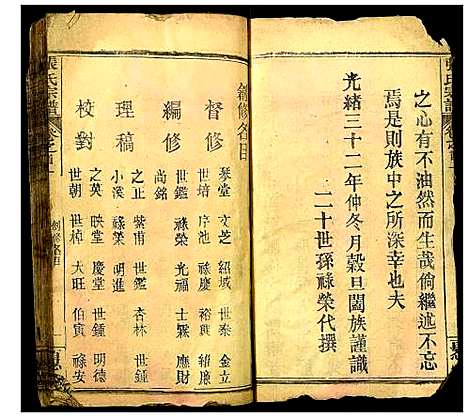 張氏宗譜
之心有不油然而生哉倘繼述不忘
焉是則族中之所深幸也夫
光緒三十二年仲冬月穀旦闔族謹識
二十世孫祿榮代撰
創修名目
督修
琴堂 文芝 紹域 世泰 金立
世培 序池 祿慶 裕興 緒廉
編修
世鑑 祿榮 光福 士霖 應財
尚銘
理稿
之正 紫甫 世鑑 杏林 世鍾
小溪 祿榮 明進
校對
之英 映堂 慶堂 世鍾 明德
世朝 世楨 大旺 伯寅 祿安
張氏宗譜
卷之首一
創修名目